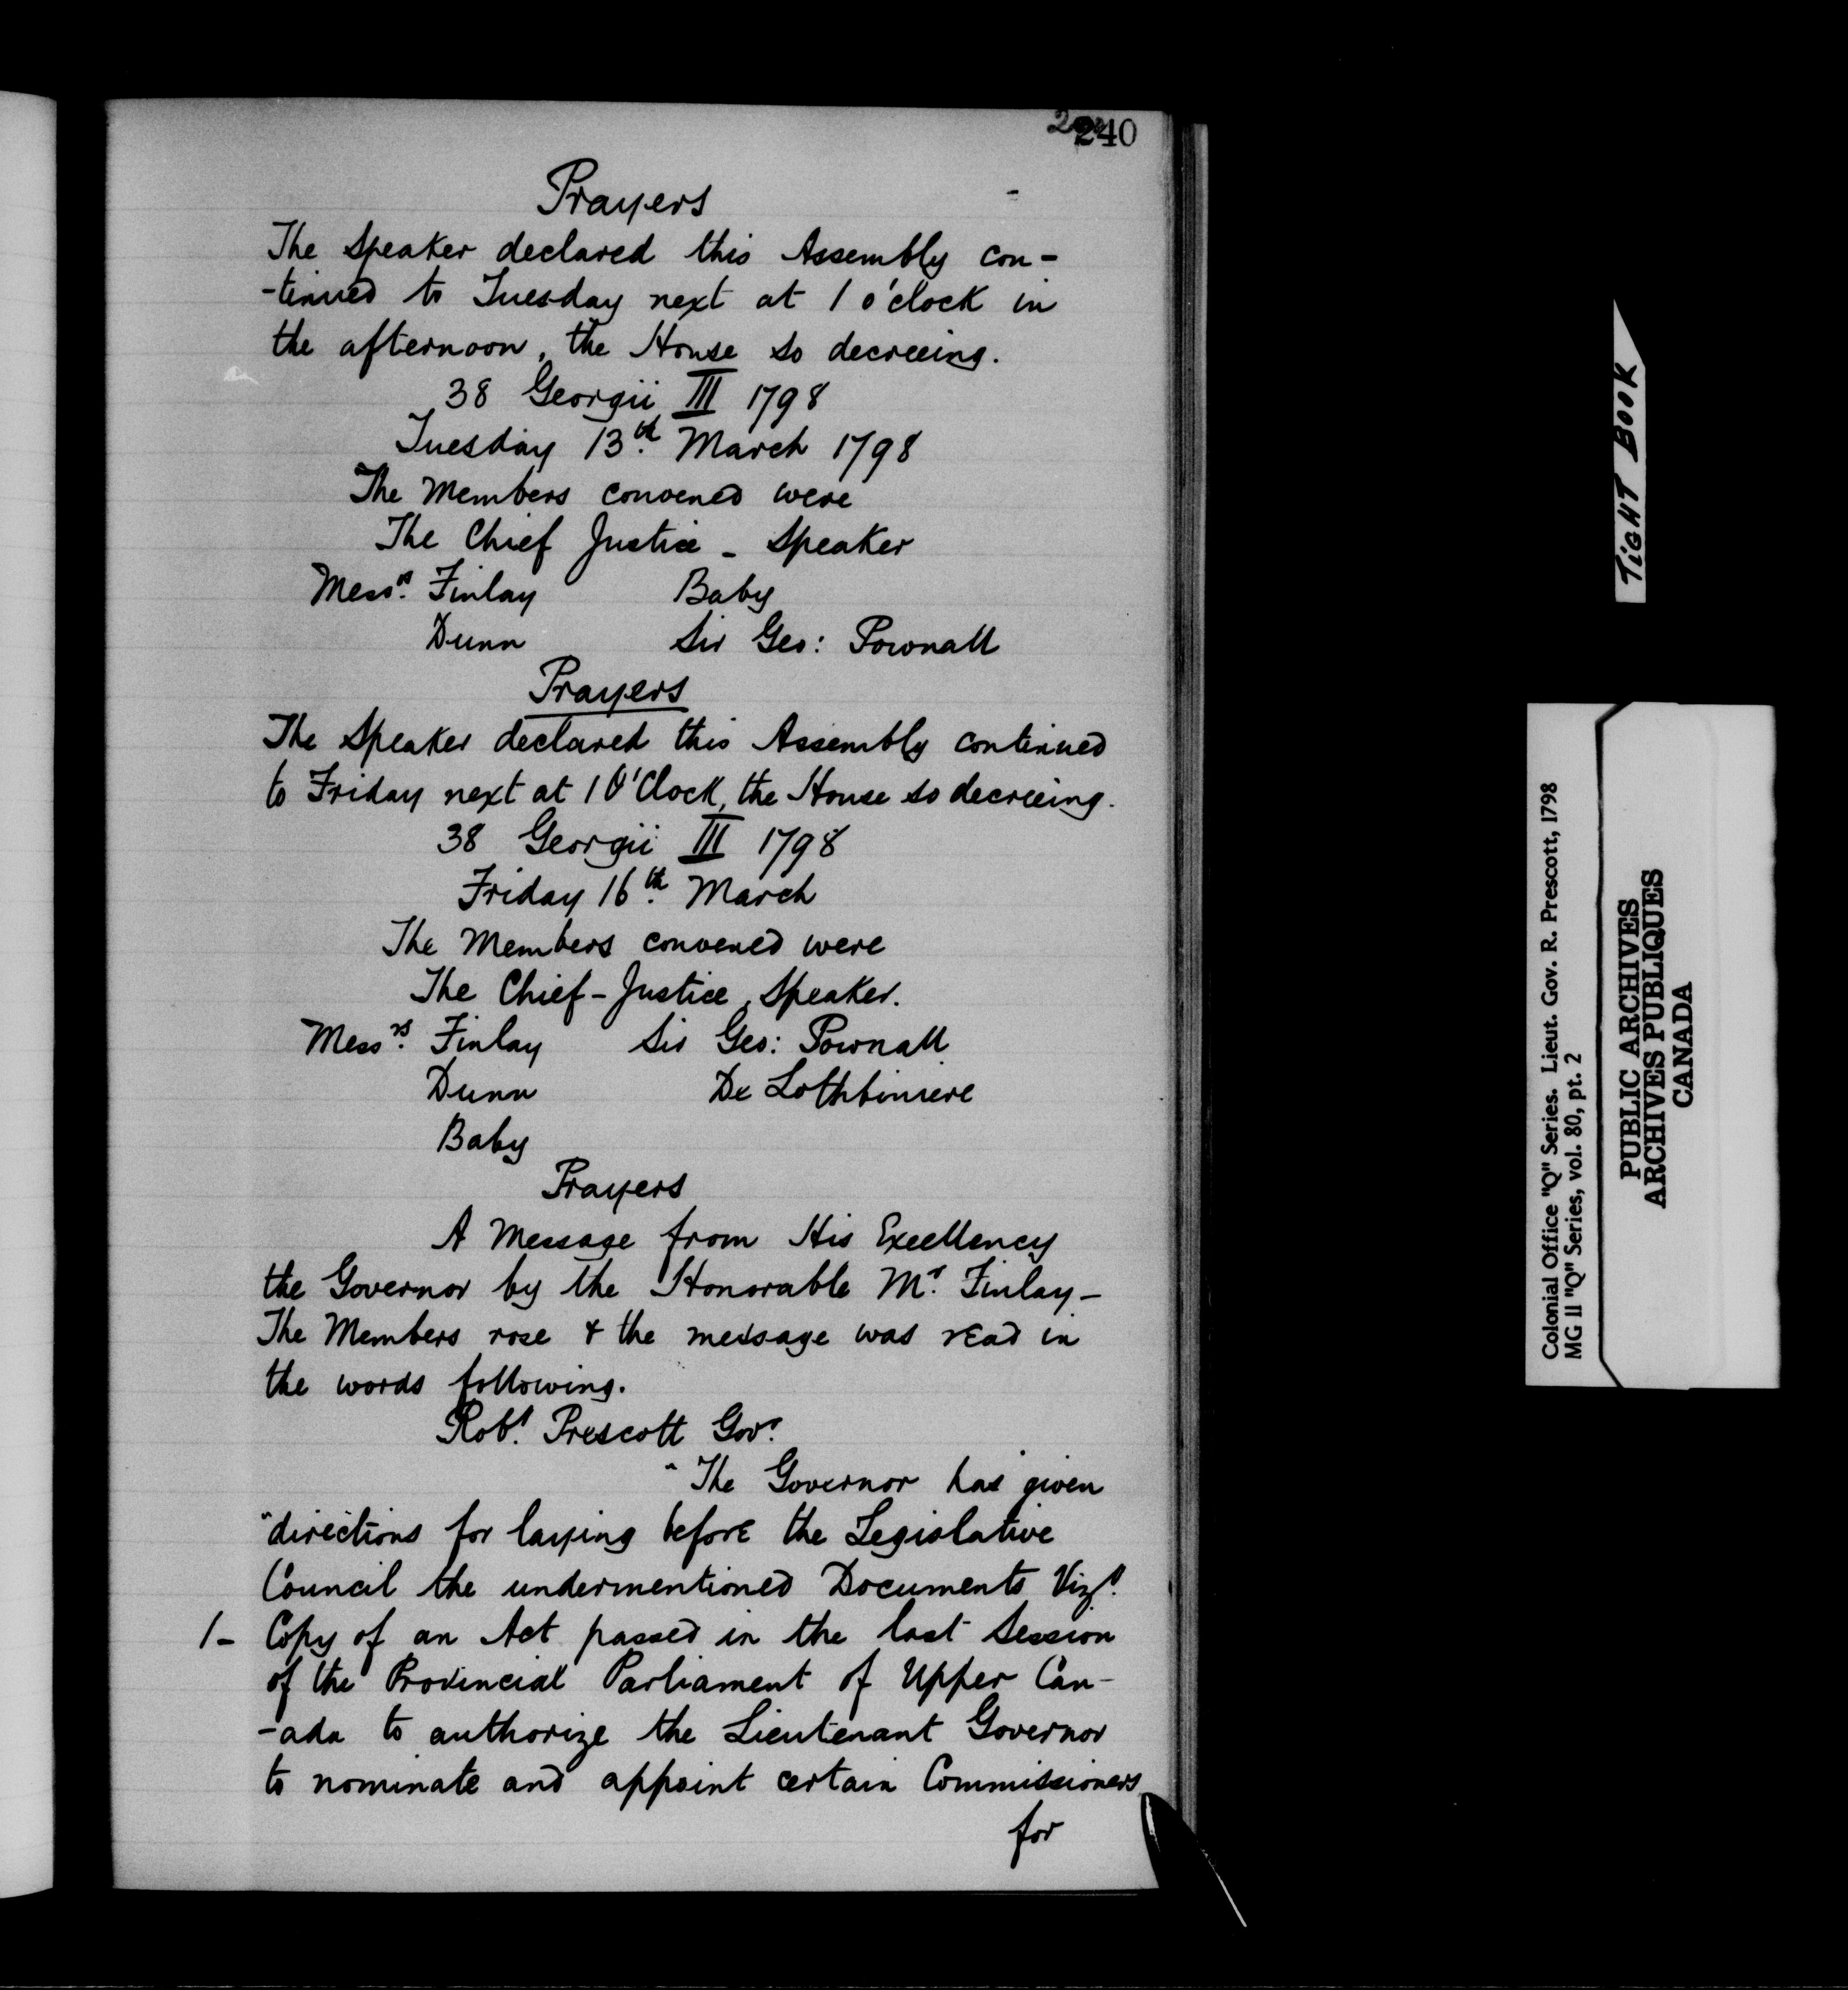 240
Prayers
The Speaker declared this Assembly con-
-tinued to Tuesday next at 1 o'clock in
the afternoon, the House so decreeing.
38 Georgii III 1798
Tuesday 13th. March 1798
The Members convened were
The Chief Justice - Speaker
Messrs. Finlay Baby
Dunn Sir Geo: Pownall
Prayers
The Speaker declared this Assembly continued
to Friday next at 1 O'Clock, the House so decreeing.
38 Georgii III 1798
Friday 16th. March
The Members convened were
The Chief-Justice, Speaker.
Messrs. Finlay Sir Geo: Pownall
Dunn De Lothbiniere
Baby
Prayers
A Message from His Excellency
the Governor by the Honorable Mr. Finlay -
The Members rose & the message was read in
the words following.
Robt. Prescott Govr.
"The Governor has given
"directions for laying before the Legislative
Council the undermentioned Documents Vizt.
1- Copy of an Act passed in the last Session
of the Provincial Parliament of Upper Can-
-ada to authorize the Lieutenant Governor
to nominate and appoint certain Commissioners
for
TIGHT BOOK
Colonial Office "Q" Series. Lieut. Gov. R. Prescott, 1798
MG 11 "Q" Series, vol. 80, pt. 2
PUBLIC ARCHIVES
ARCHIVES PUBLIQUES
CANADA